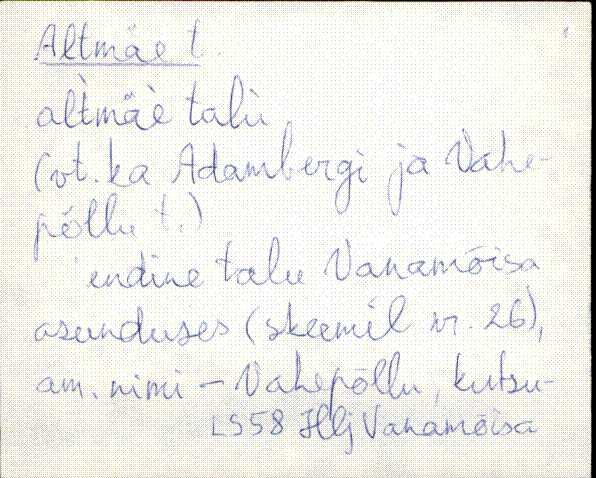 Altmäe t.
al̀tmäè talù
(vt. ka Adambergi ja Vahe-
põllu t.)
endine talu Vanamõisa
asunduses (skeemil nr. 26),
am. nimi - Vahepõllu, kutsu-
LS58 Hlj Vanamõisa